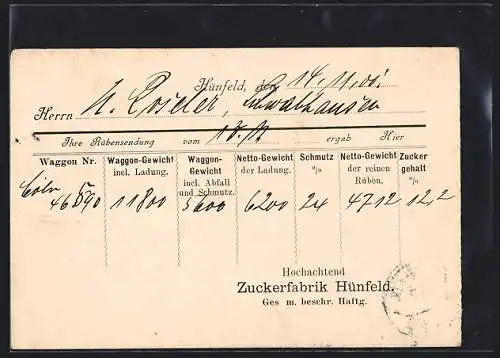 Hünfeld, den 14.11.00.
Herrn H. Roseler,
Ihre Rübensendung vom 13.11. ergab Hier
Waggon Nr. Waggon-Gewicht incl. Ladung. Waggon-Gewicht incl. Abfall und Schmutz. Netto-Gewicht der Ladung. Schmutz % Netto-Gewicht der reinen Rüben. Zucker gehalt %
Cöln 11800 5600 6200 24 4712 12,2
Hochachtend
Zuckerfabrik Hünfeld.
Ges m. beschr. Haftg.